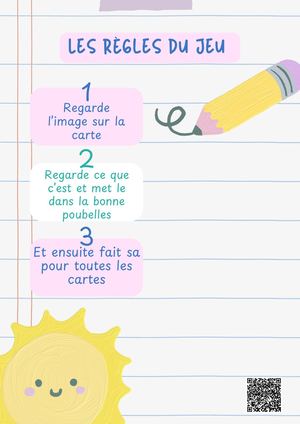 LES RÈGLES DU JEU
1
Regarde
l'image sur la
carte
2
Regarde ce que
c'est et met le
dans la bonne
poubelles
3
Et ensuite fait sa
pour toutes les
cartes